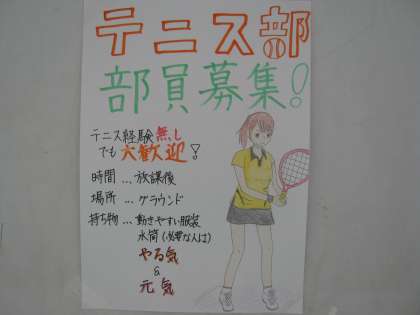 テニス部
部員募集!
テニス経験無し
でも大歓迎!
時間…放課後
場所…グラウンド
持ち物…動きやすい服装
水筒(必要な人は)
やる気
&
元気